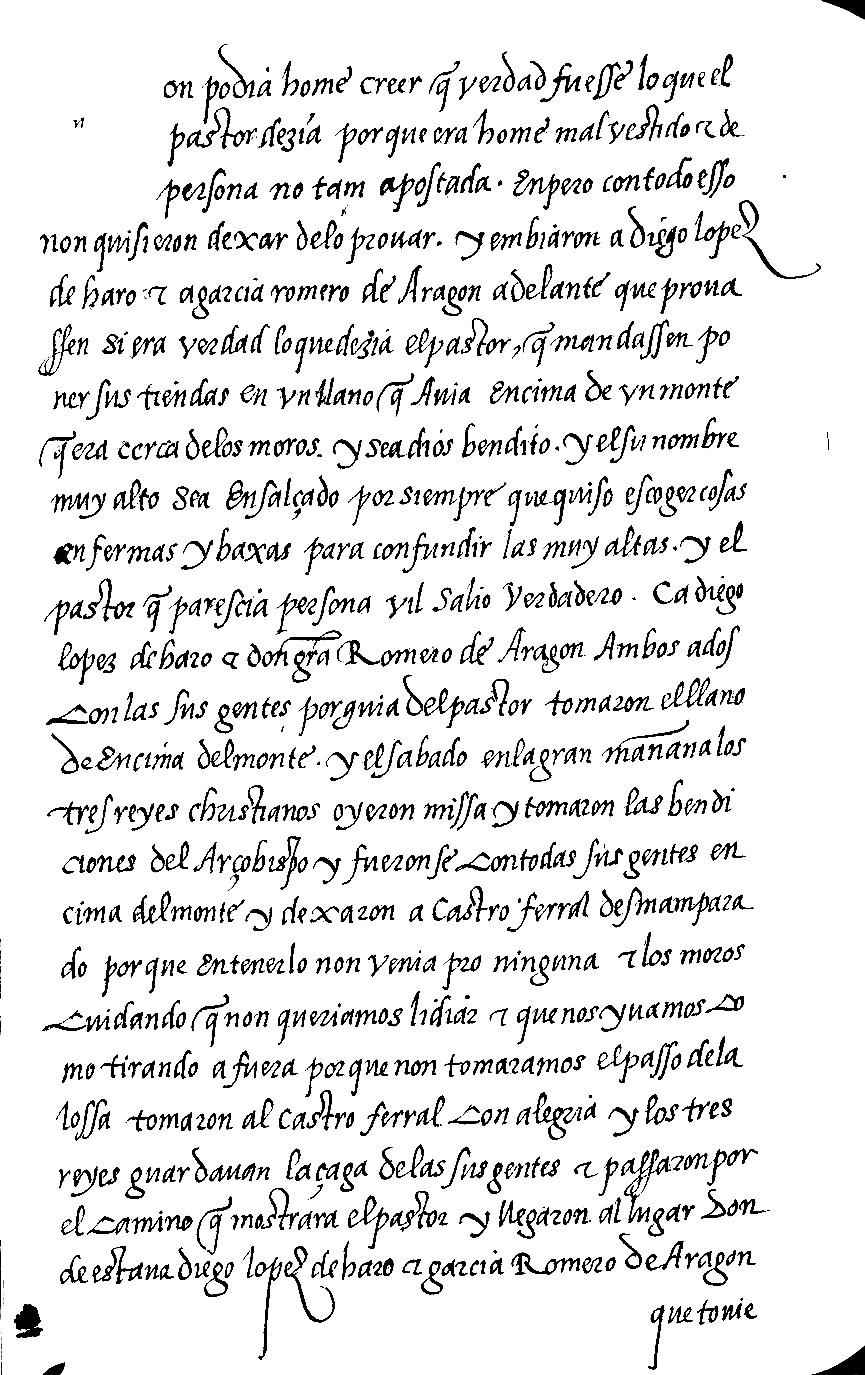 on podia home creer q̃ verdad fuesse lo que el
n
pastor dezia por que era home mal vestido & de
persona no tam apostada. Enpero contodo esso
non quisieron dexar delo prouar. y embiaron a diego lopez
de haro & agarcia romero de Aragon adelante que proua
ssen si era verdad loquedezia elpastor, q̃ mandassen po
ner sus tiendas en vn llano q̃ Auia Encima de vn monte
q̃ era cerca delos moros. y sea dios bendito. y elsu nombre
muy alto sea Ensalçado por siempre que quiso escoger cosas
enfermas y baxas para confundir las muy altas. y el
pastor q̃ parescia persona vil salio verdadero. Ca diego
lopez de haro & don gr̃a Romero de Aragon Ambos ados
Con las sus gentes por guia del pastor tomaron el llano
de Encima delmonte. y elsabado enlagran mañana los
tres reyes christianos oyeron missa y tomaron las bendi
ciones del Arçobispo y fueronse Contodas sus gentes en
cima delmonte y dexaron a Castro ferral desmampara
do por que Entenerlo non venia pro ninguna & los moros
Cuidando q̃ non queriamos lidiar & que nos yuamos Co
mo tirando a fuera por que non tomaramos elpasso dela
lossa tomaron al Castro ferral Con alegria y los tres
reyes guardauan la çaga delas sus gentes & passaron por
el Camino q̃ mostrara elpastor y llegaron al lugar Don
de estaua diego lopez de haro & garcia Romero de Aragon
que touie